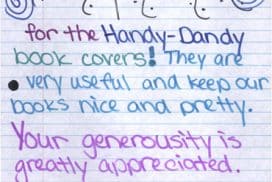 for the Handy-Dandy
book covers! They are
very useful and keep our
books nice and pretty.
Your generousity is
greatly appreciated.